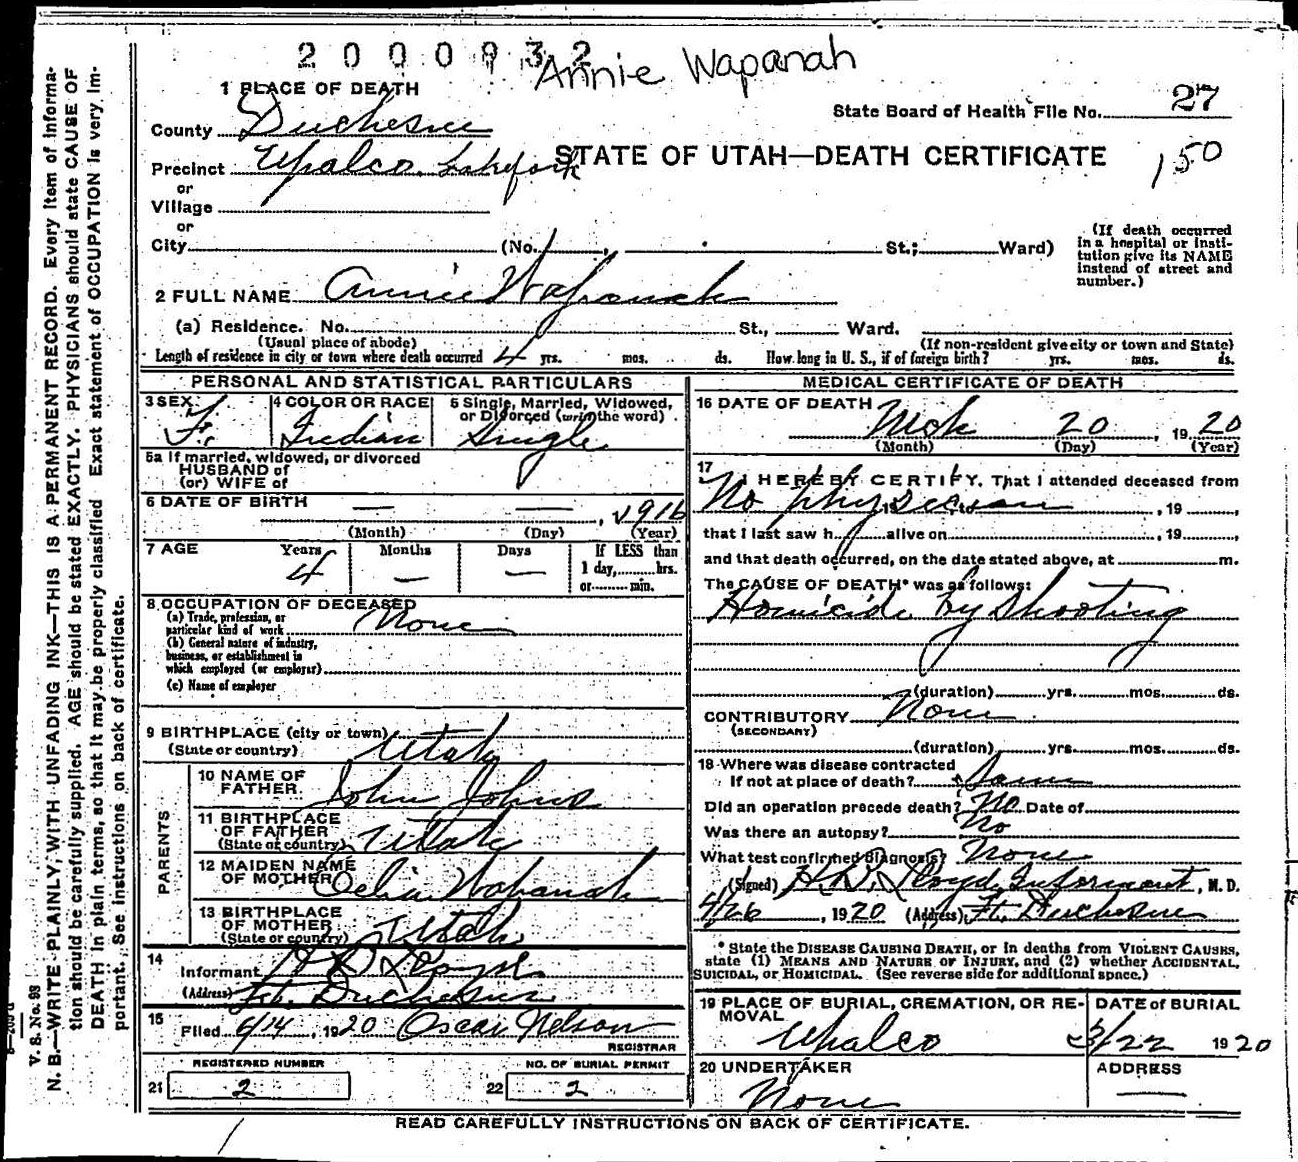 2000932
Annie Wapanah
1 PLACE OF DEATH
State Board of Health File No. 27
County Duchesne
Precinct Upalco. Lakefork
STATE OF UTAH—DEATH CERTIFICATE
150
or
Village
or
City (No. , St.; Ward)
(If death occurred
in a hospital or insti-
tution give its NAME
instead of street and
number.)
2 FULL NAME Annie Wapanah
(a) Residence. No. St., Ward.
(Usual place of abode) (If non-resident give city or town and State)
Length of residence in city or town where death occurred 4 yrs. mos. ds. How long in U. S., if of foreign birth? yrs. mos. ds.
PERSONAL AND STATISTICAL PARTICULARS
3 SEX F.
4 COLOR OR RACE Indian
5 Single, Married, Widowed,
or Divorced (write the word)
Single
5a If married, widowed, or divorced
HUSBAND of
(or) WIFE of
6 DATE OF BIRTH — — , 1916
(Month) (Day) (Year)
7 AGE Years Months Days If LESS than
4 — — 1 day, hrs.
or min.
8 OCCUPATION OF DECEASED
(a) Trade, profession, or
particular kind of work None
(b) General nature of industry,
business, or establishment in
which employed (or employer)
(c) Name of employer
9 BIRTHPLACE (city or town)
(State or country) Utah
PARENTS
10 NAME OF
FATHER. John Johns
11 BIRTHPLACE
OF FATHER
(State or country) Utah
12 MAIDEN NAME
OF MOTHER Celia Wapanah
13 BIRTHPLACE
OF MOTHER
(State or country) Utah
14
Informant H D Lloyd
(Address) Ft. Duchesne
15
Filed 6/14, 1920 Oscar Nelson
REGISTRAR
REGISTERED NUMBER NO. OF BURIAL PERMIT
21 2 22 2
MEDICAL CERTIFICATE OF DEATH
16 DATE OF DEATH
Mch 20, 1920
(Month) (Day) (Year)
17
I HEREBY CERTIFY, That I attended deceased from
No physician , 19 ,
that I last saw h alive on , 19 ,
and that death occurred, on the date stated above, at m.
The CAUSE OF DEATH* was as follows:
Homicide by Shooting
(duration) yrs. mos. ds.
CONTRIBUTORY None
(SECONDARY)
(duration) yrs. mos. ds.
18 Where was disease contracted
If not at place of death? Same
Did an operation precede death? No Date of
Was there an autopsy? No
What test confirmed diagnosis? None
(Signed) H. D. Lloyd, Informant, M. D.
4/26, 1920 (Address) Ft. Duchesne
* State the DISEASE CAUSING DEATH, or in deaths from VIOLENT CAUSES,
state (1) MEANS AND NATURE OF INJURY, and (2) whether ACCIDENTAL,
SUICIDAL, or HOMICIDAL. (See reverse side for additional space.)
19 PLACE OF BURIAL, CREMATION, OR RE-
MOVAL
Upalco
DATE of BURIAL
3/22 1920
20 UNDERTAKER
None
ADDRESS
—
READ CAREFULLY INSTRUCTIONS ON BACK OF CERTIFICATE.
V. S. No. 93
N. B.—WRITE PLAINLY, WITH UNFADING INK—THIS IS A PERMANENT RECORD. Every item of informa-
tion should be carefully supplied. AGE should be stated EXACTLY. PHYSICIANS should state CAUSE OF
DEATH in plain terms, so that it may be properly classified. Exact statement of OCCUPATION is very im-
portant. See instructions on back of certificate.